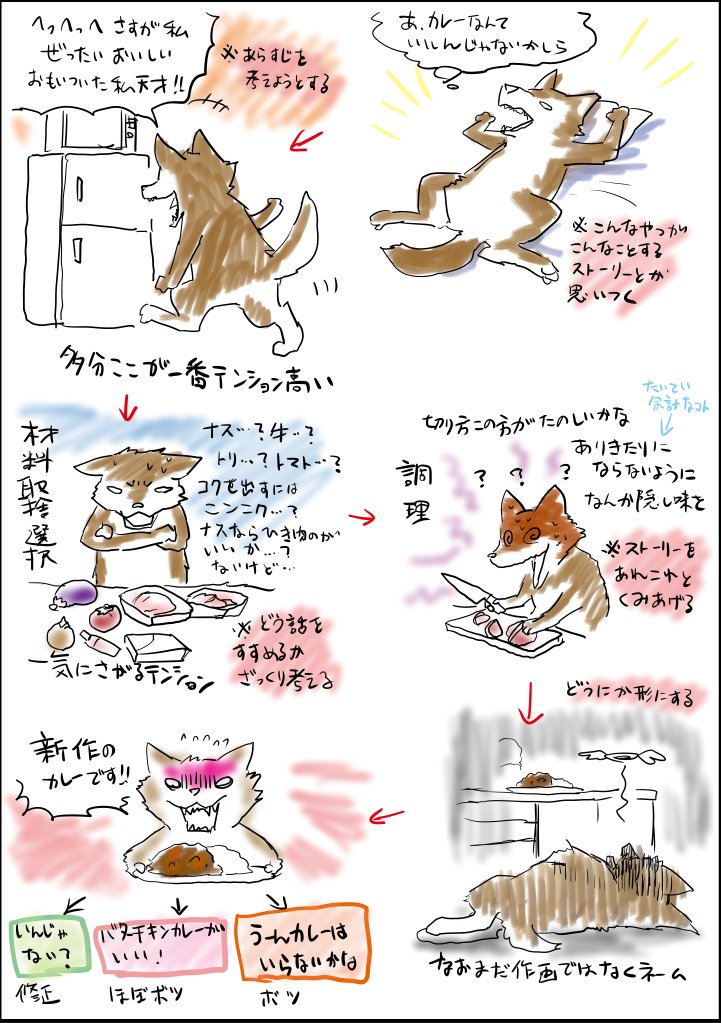 あ、カレーなんて
いいんじゃないかしら
※こんなやつが
こんなことする
ストーリーとか
思いつく
へっへっへ さすが私
ぜったい おいしい
おもいついた 私天才!!
※あらすじを
考えようとする
多分ここが一番テンション高い
材料取捨選択
ナス…?牛…?
トリ…?トマト…?
コクを出すには
ニンニク…?
ナスならひき肉のが
いいか…?
ないけど…
※どう話を
すすめるか
ざっくり考える
一気にさがるテンション
たいてい
余計なコト
切り方この方がたのしいかな
ありきたりに
ならないように
なんか隠し味を
調理
? ? ?
※ストーリーを
あれこれと
くみあげる
どうにか形にする
なおまだ作画ではなくネーム
新作の
カレーです!!
いんじゃ
ない?
修正
バターチキンカレーが
いい!
ほぼボツ
うーんカレーは
いらないかな
ボツ